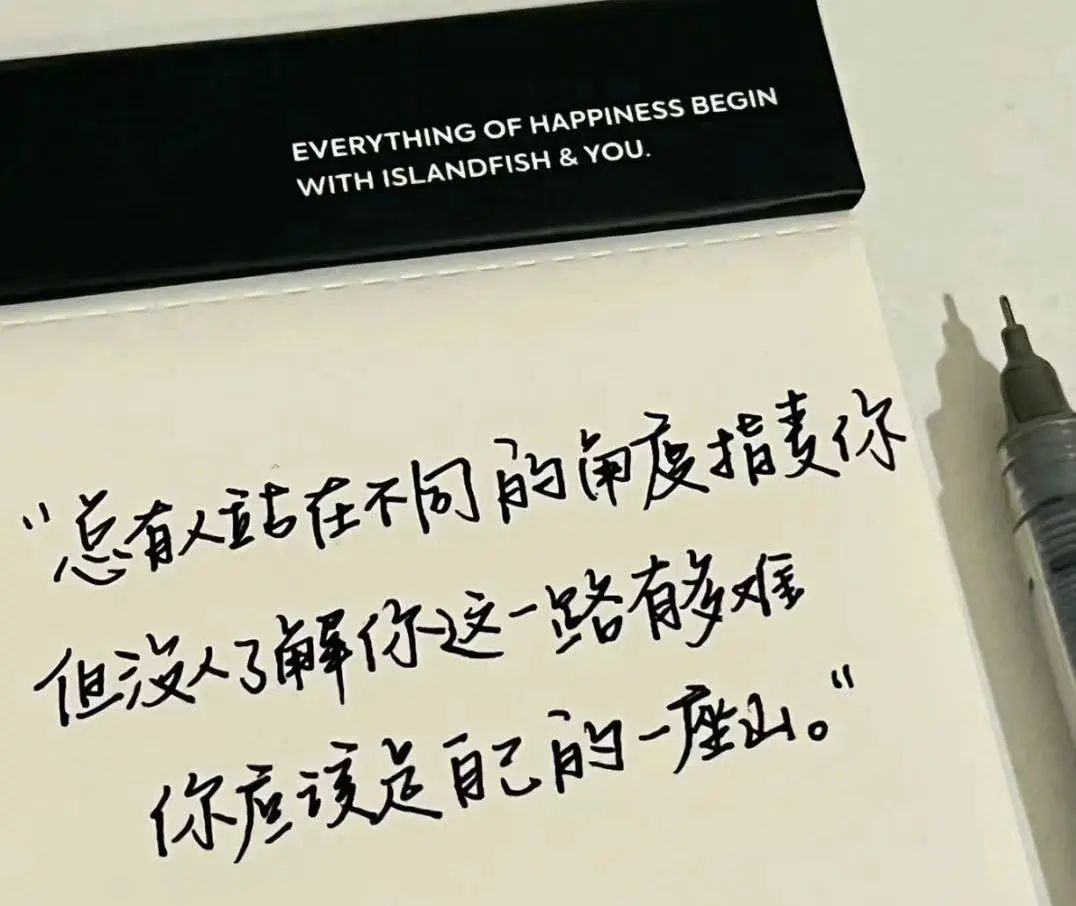 EVERYTHING OF HAPPINESS BEGIN
WITH ISLANDFISH & YOU.
“总有人站在不同的角度指责你
但没人了解你这一路有多难
你应该是自己的一座山。”